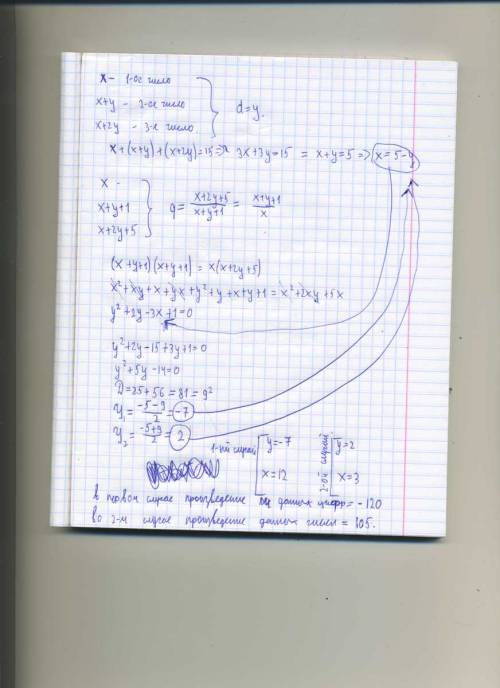 x – 1-ое число
x+y – 2-ое число
x+2y – 3-е число
d=y.
x+(x+y)+(x+2y)=15 => 3x+3y=15 = x+y=5 => x=5-y
x –
x+y+1
x+2y+5
q = (x+2y+5)/(x+y+1) = (x+y+1)/x
(x+y+1)(x+y+1) = x(x+2y+5)
x²+xy+x+yx+y²+y+x+y+1 = x²+2xy+5x
y²+2y-3x+1=0
y²+2y-15+3y+1=0
y²+5y-14=0
D=25+56=81=9²
y₁ = (-5-9)/2 = -7
y₂ = (-5+9)/2 = 2
1-ый случай [ y=-7
x=12
2-ой случай [ y=2
x=3
в первом случае произведение данных цифр = -120
во 2-м случае произведение данных чисел = 105.